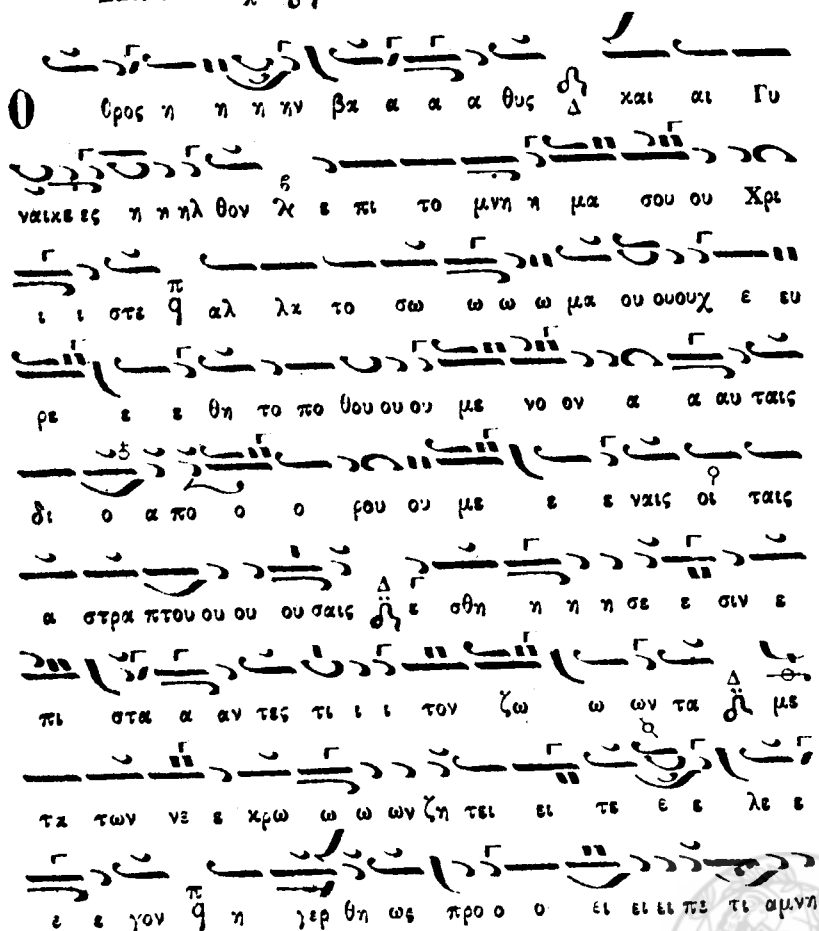 Ο θρος η η η ην βα α α α θυς Δ και αι Γυ
ναικε ες η η ηλ θον λε ε πι το μνη η μα σου ου Χρι
ι ι στε π q αλ λα το σω ω ω ω μα ου ουουχ ε ευ
ρε ε ε θη το πο θου ου ου με νο ον α α αυ ταις
δι ο α πο ο ο ρου ου με ε ε ναις οι ταις
α στρα πτου ου ου ου σαις Δ ε σθη η η η σε ε σιν ε
πι στα α αν τες τι ι ι τον ζω ω ων τα Δ με
τα των νε ε κρω ω ω ων ζη τει ει τε ε ε λε ε
ε ε γον π q η γερ θη ως προ ο ο ει ει ει πε τι αμνη